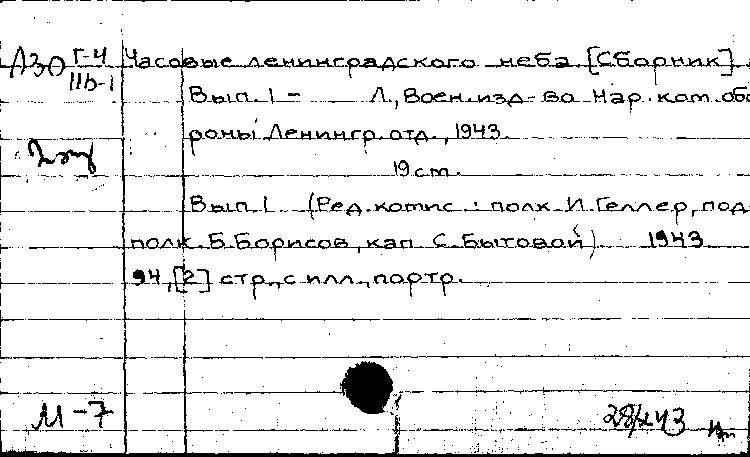 Л30 Г-4 Часовые ленинградского неба. [Сборник].
11b-1 Вып. 1 - Л., Воен. изд-во Нар. ком. обо
роны Ленингр. отд., 1943.
19 cm.
Вып. 1 (Ред. комис.: полк. И. Геллер, под
полк. Б. Борисов, кап. С. Бытовой). 1943
94, [2] стр., с илл., портр.
М-7